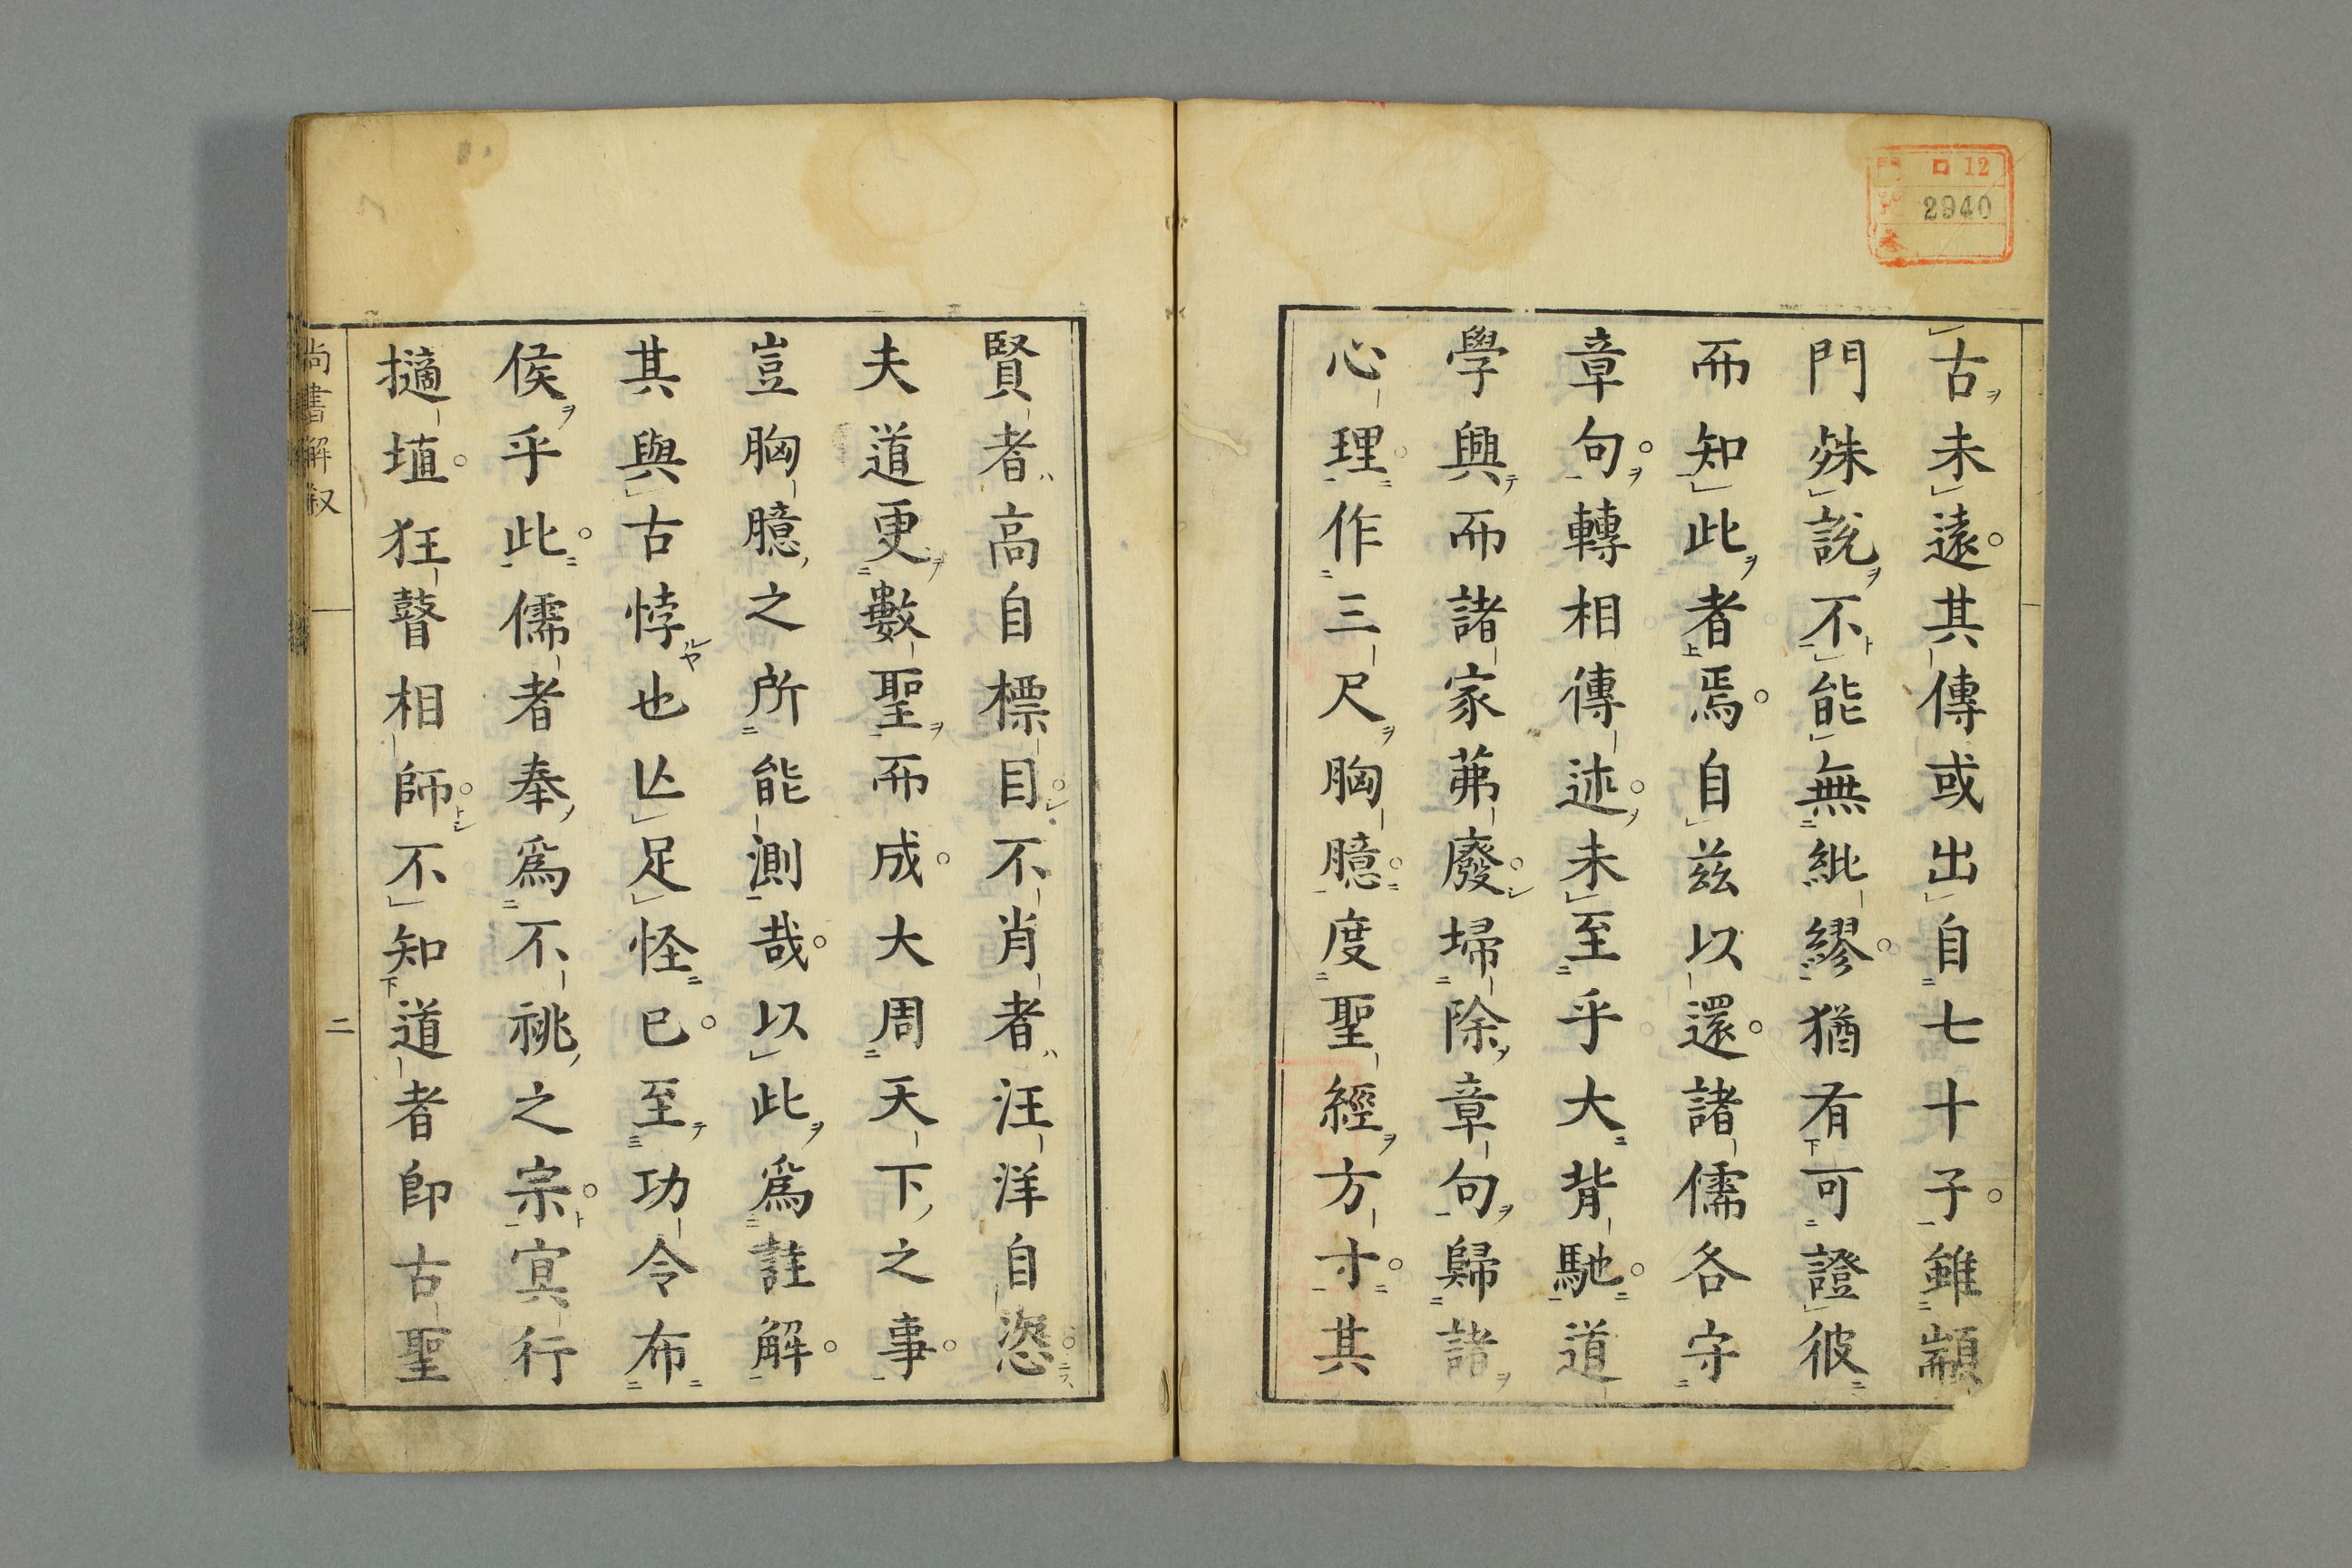 古未遠其傳或出自七十子雖顓
門殊說不能無紕繆猶有可證彼
而知此者焉自玆以還諸儒各守
章句轉相傳述未至乎大背馳道
學興而諸家茀廢埽除章句歸諸
心理作三尺胸臆度聖經方寸其
賢者高自標目不肖者汪洋自恣
夫道更數聖而成大周天下之事
豈胸臆之所能測哉以此爲註解
其與古悖也亾足怪已至功令布
侯乎此儒者奉爲不祧之宗冥行
擿埴狂瞽相師不知道者卽古聖
尚書解叙
二
口 12
2940